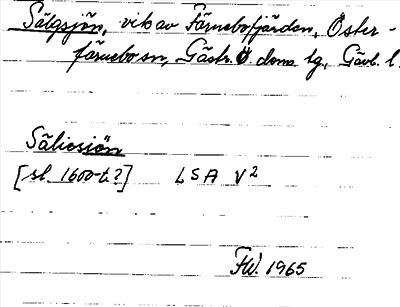 Sälgsjön, vik av Färnebofjärden, Öster-
färnebo sn, Gästr. Ö. doms tg, Gävl. l.
Säliosiön
[sl. 1600-t.?] LSA V2
FW. 1965